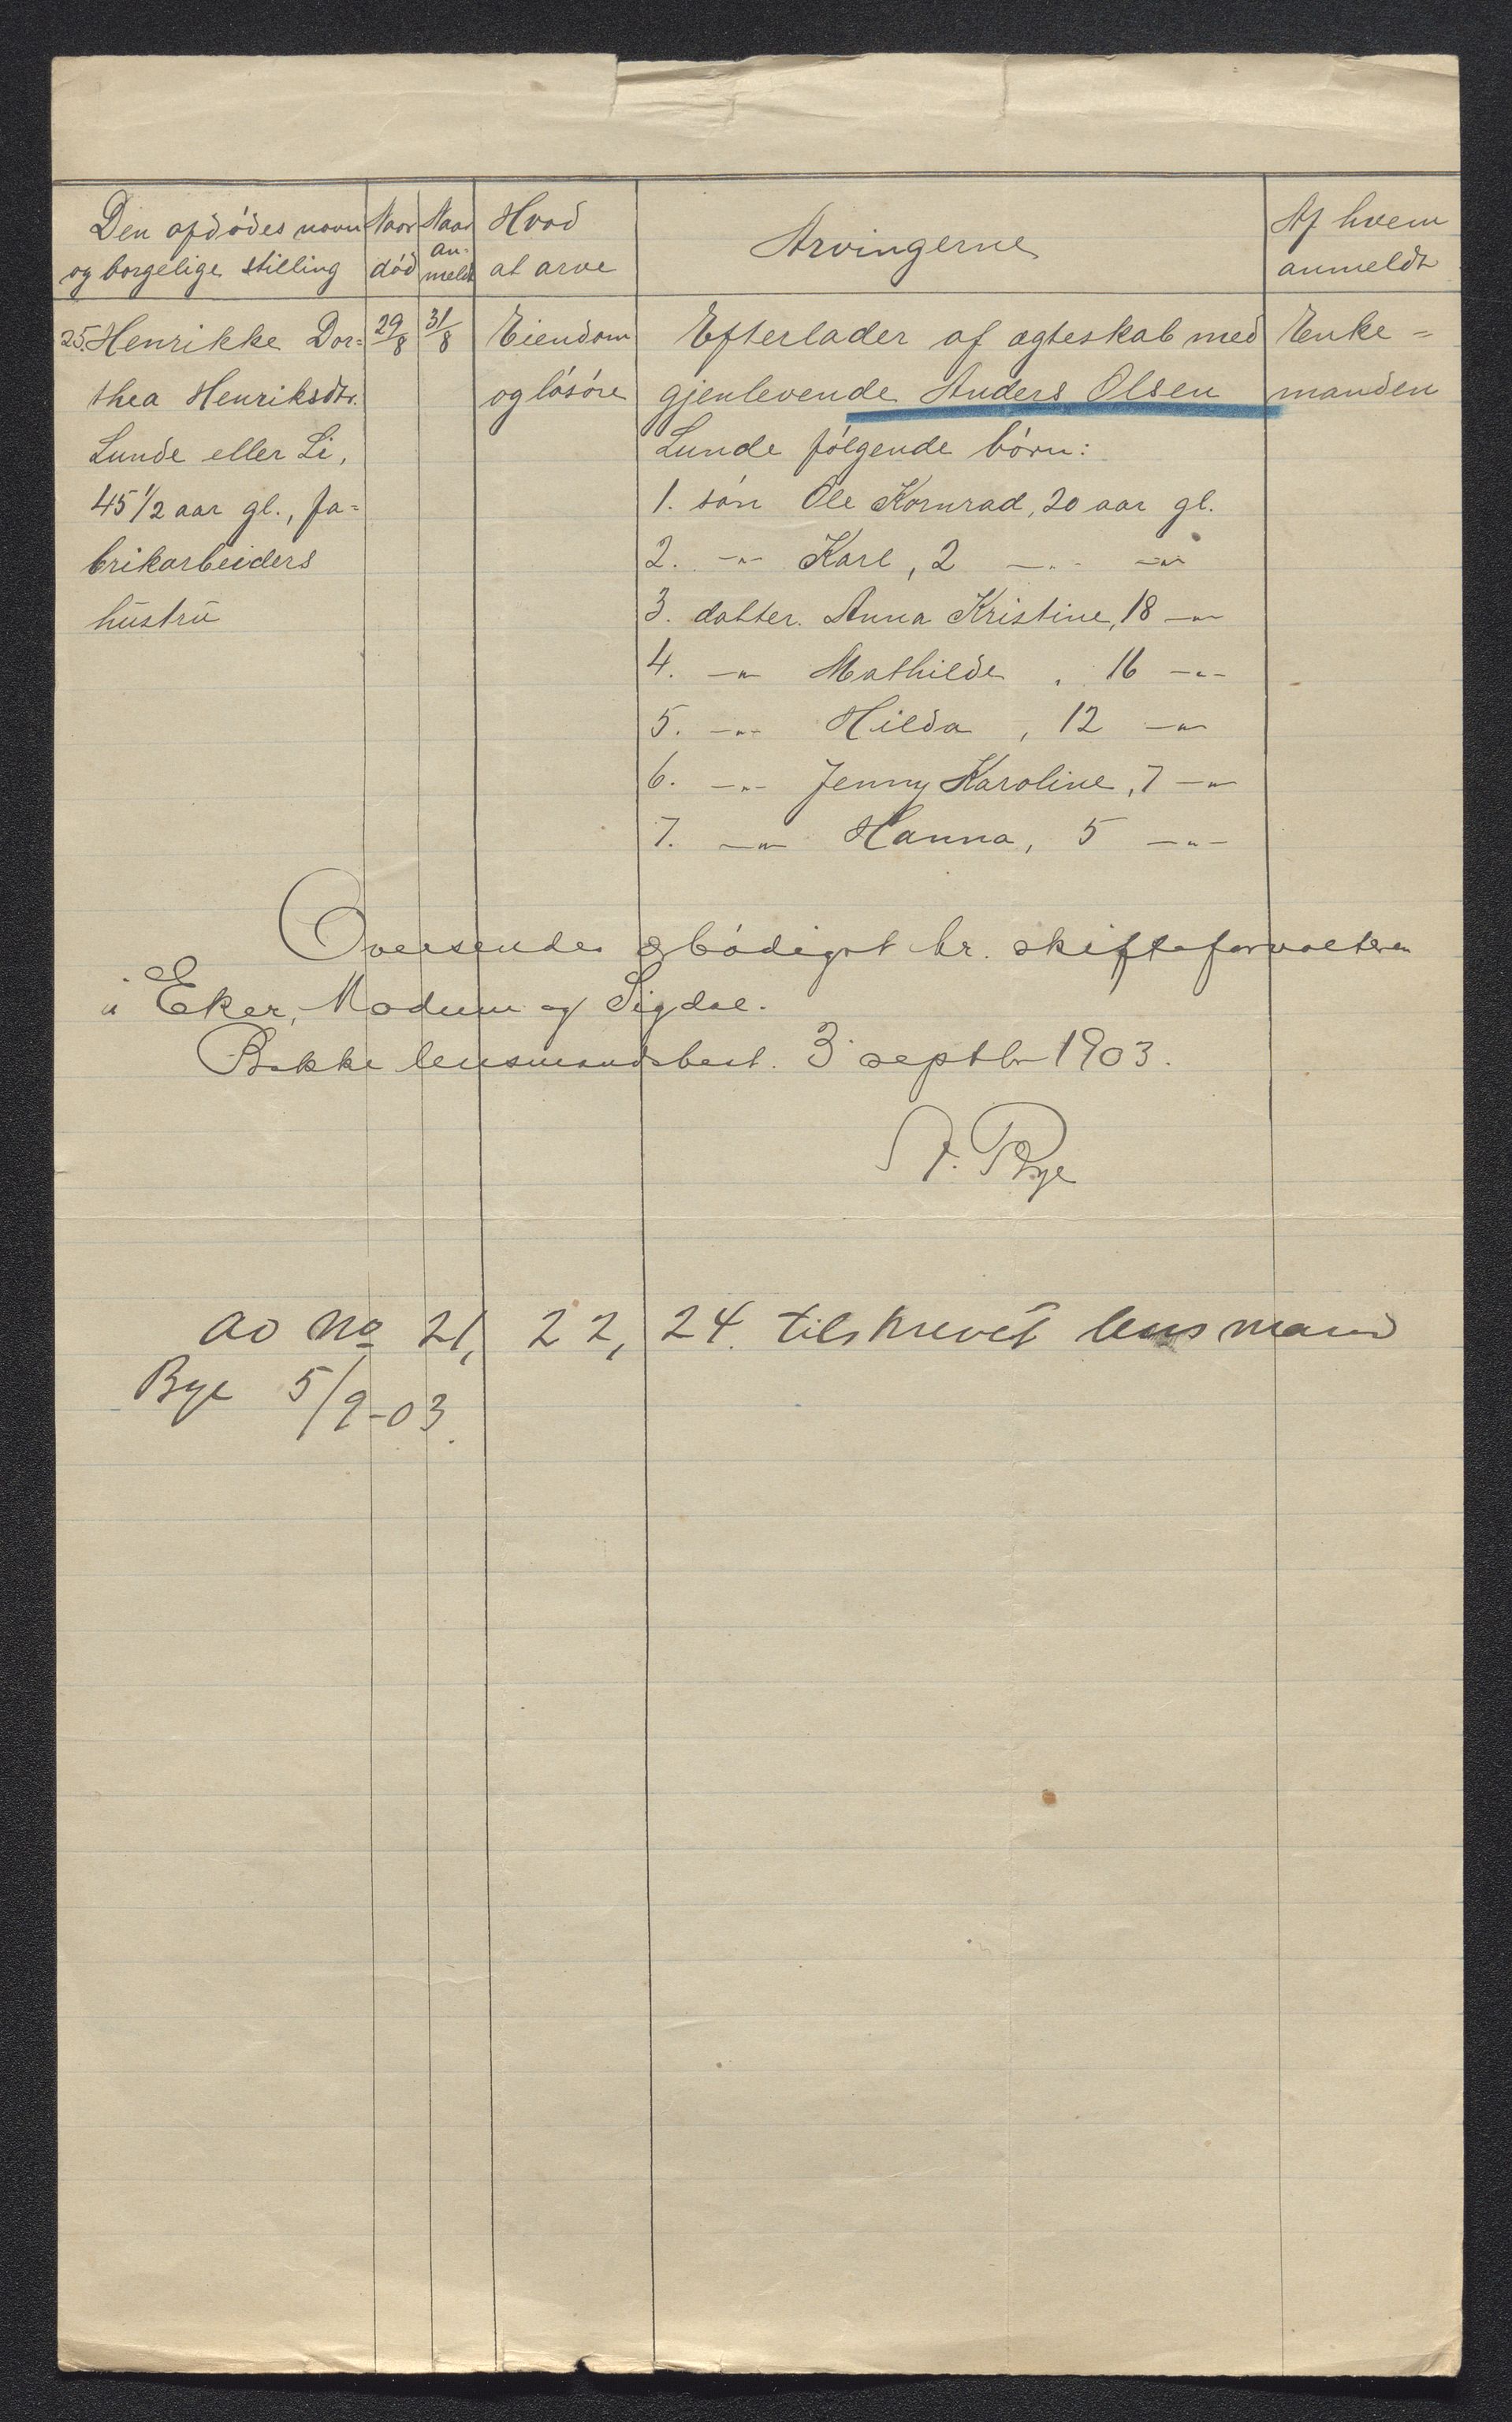 Den afdödes navn og borgelige stilling | Naar död | Naar anmeldt | Hvad at arve | Arvingerne | Af hvem anmeldt
25. Henrikke Dor= | 29/8 | 31/8 | Eiendom | Efterlader af ægteskab med | Enke=
thea Henriksdtr. | og lösöre | gjenlevende Anders Olsen | manden
Lunde eller Li, | Lunde fölgende börn:
45 1/2 aar gl., fa= | 1. sön Ole Kornrad, 20 aar gl.
brikarbeiders | 2. -"- Karl, 2 -"- -"-
hustru | 3. datter. Anna Kristine, 18 -"-
4. -"- Mathilde, 16 -"-
5. -"- Hilda, 12 -"-
6. -"- Jenny Karoline, 7 -"-
7. -"- Hanna, 5 -"-
Oversendes ærbödigst hr. skifteforvalteren
i Eker, Modum og Sigdal.
Bakke lensmandsbest. 3 septbr 1903.
A. Bye
ao No 21, 22, 24. tilskrevet lensmand
Bye 5/9-03.